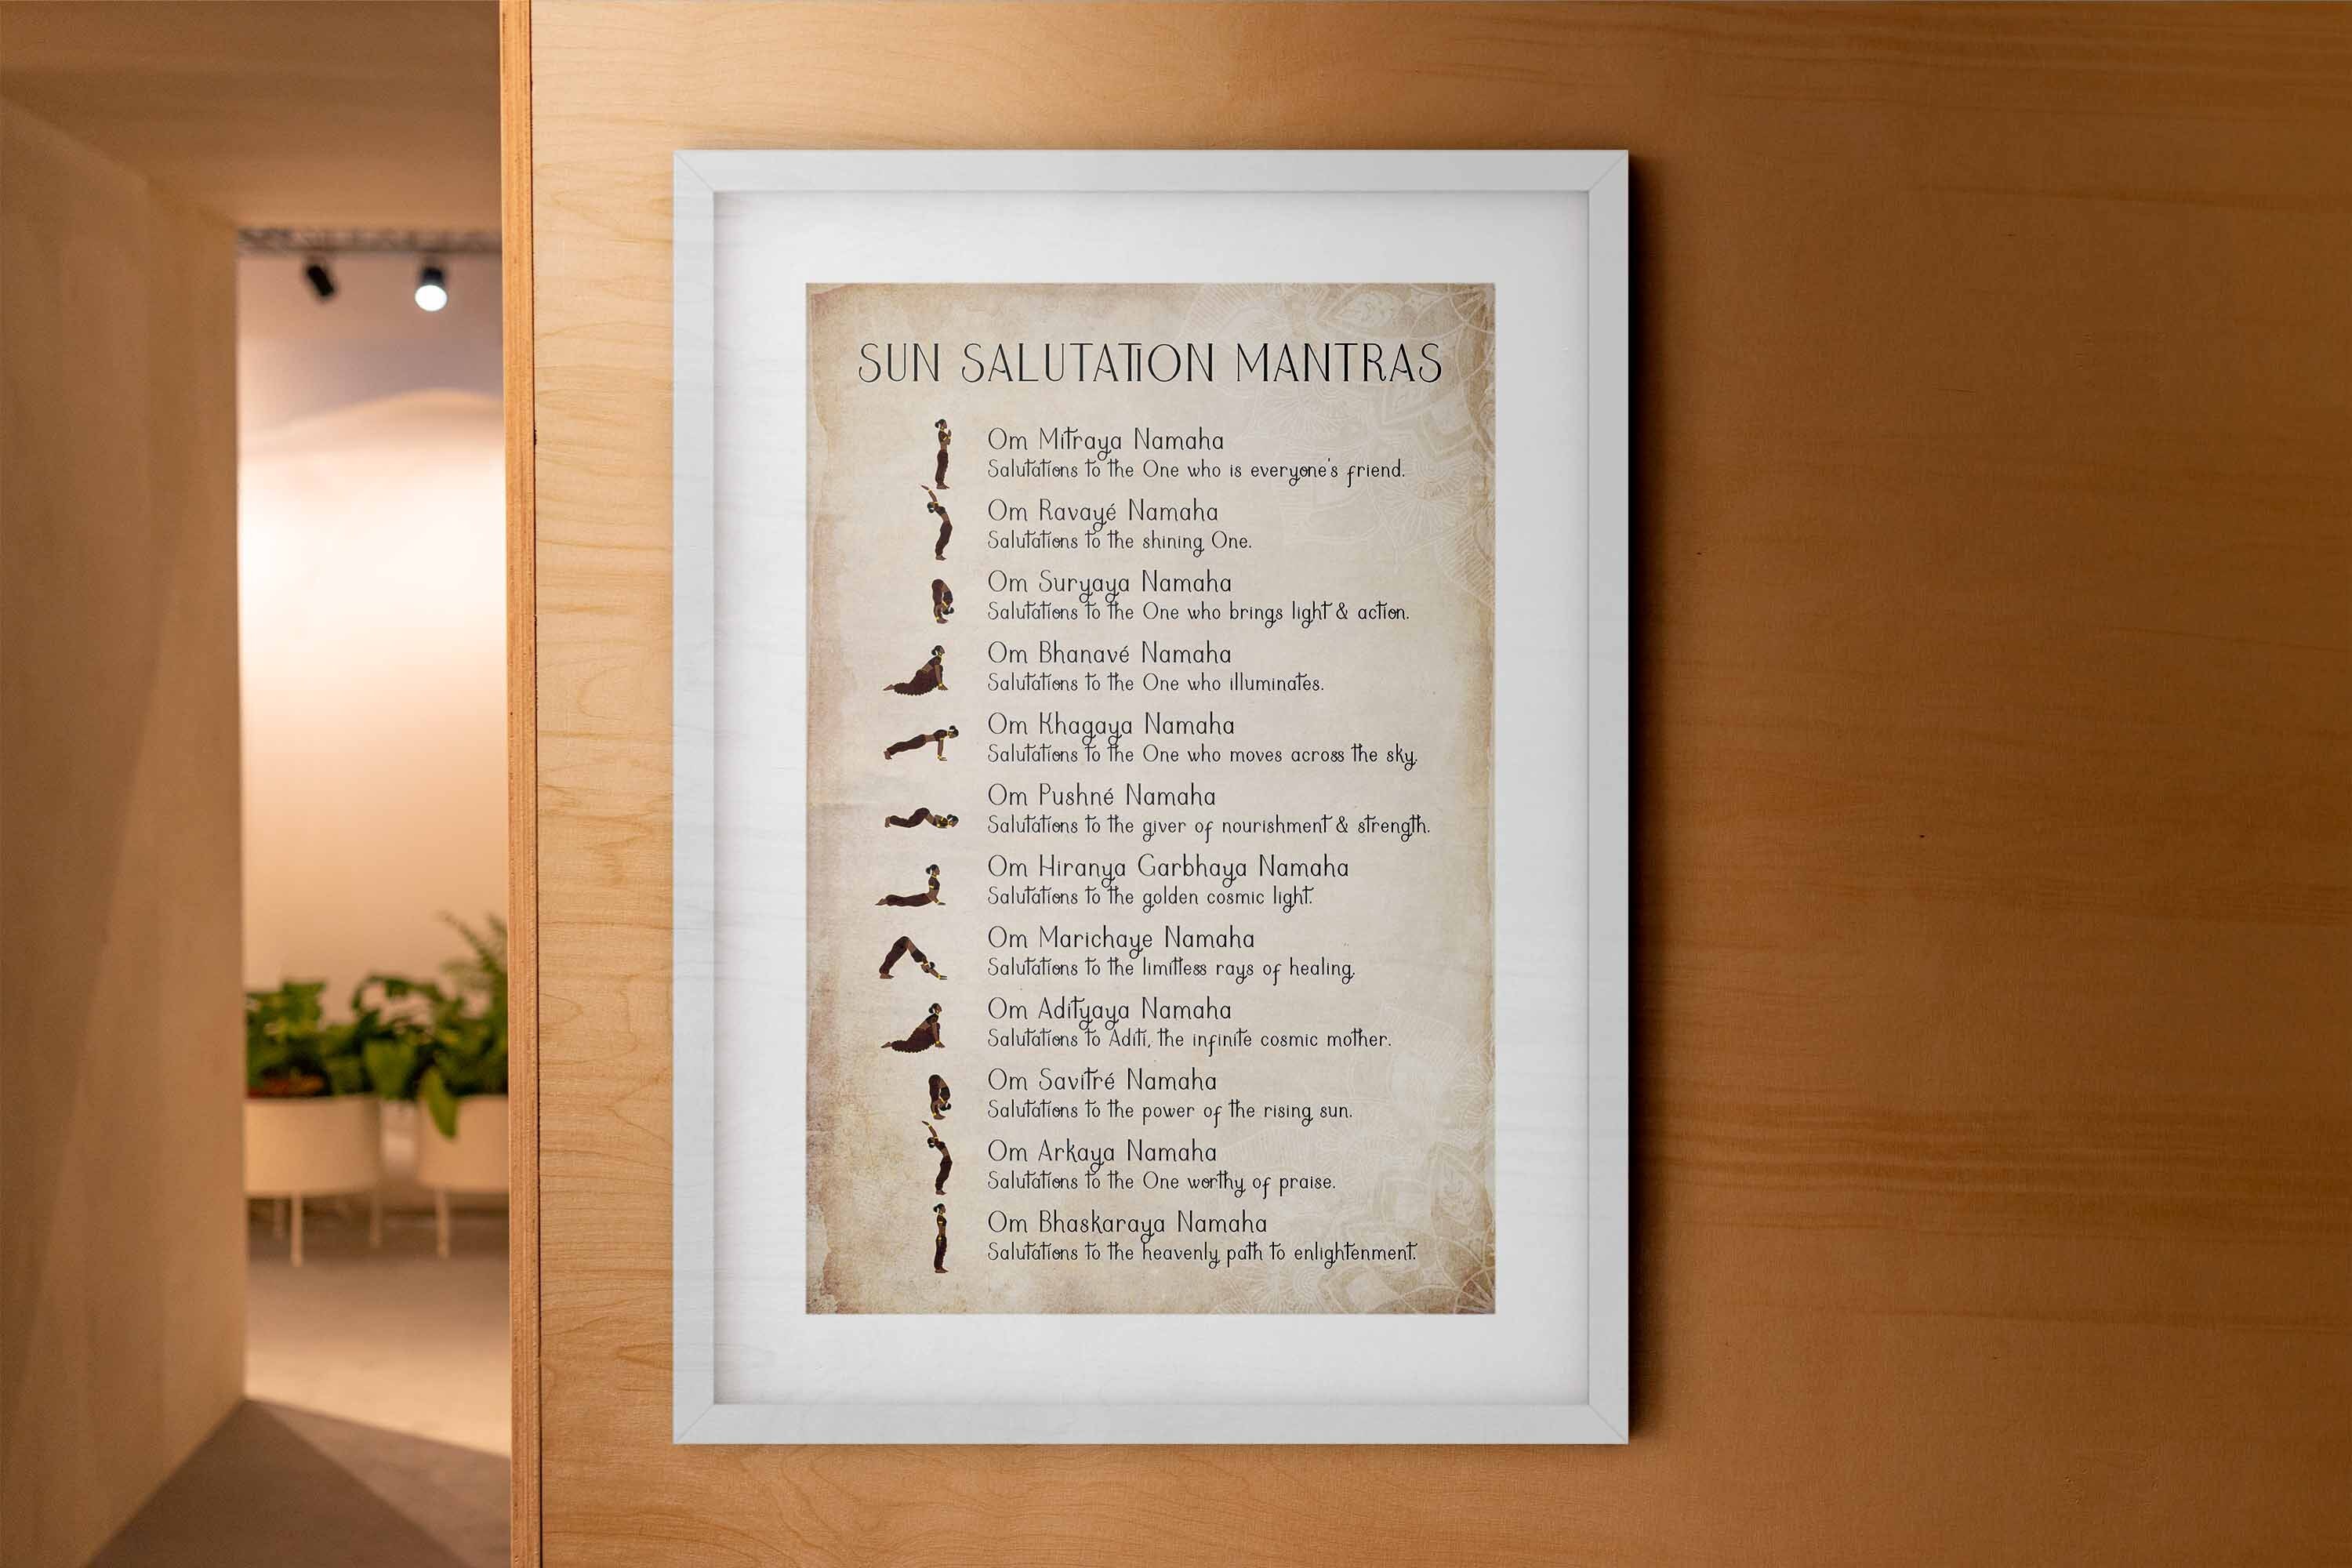 SUN SALUTATION MANTRAS
Om Mitraya Namaha
Salutations to the One who is everyone's friend.
Om Ravayé Namaha
Salutations to the shining One.
Om Suryaya Namaha
Salutations to the One who brings light & action.
Om Bhanavé Namaha
Salutations to the One who illuminates.
Om Khagaya Namaha
Salutations to the One who moves across the sky.
Om Pushné Namaha
Salutations to the giver of nourishment & strength.
Om Hiranya Garbhaya Namaha
Salutations to the golden cosmic light.
Om Marichaye Namaha
Salutations to the limitless rays of healing.
Om Adityaya Namaha
Salutations to Aditi, the infinite cosmic mother.
Om Savitré Namaha
Salutations to the power of the rising sun.
Om Arkaya Namaha
Salutations to the One worthy of praise.
Om Bhaskaraya Namaha
Salutations to the heavenly path to enlightenment.